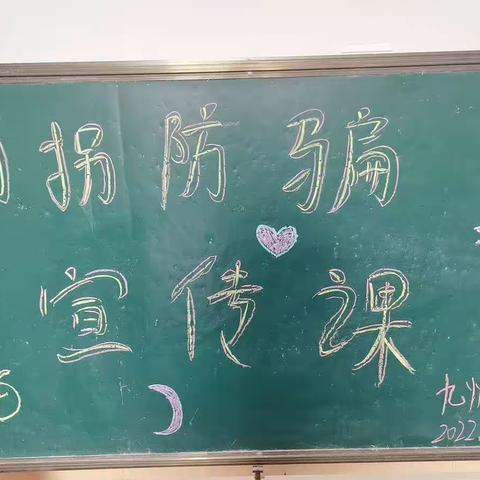 拐防骗
宣传课
九
2022.